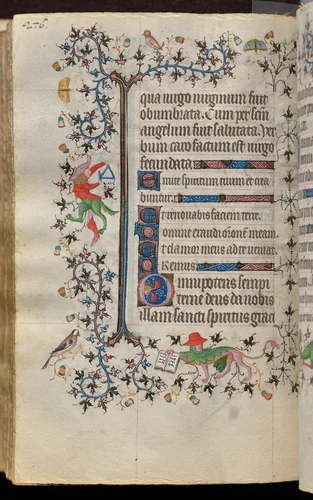 276.
qua virgo virginum fuit
obumbrata. Cum per scm
angelum fuit salutata. Ver
bum caro factum est virgo
fecundata.
Emitte spiritum tuum et crea
buntur.
Et renovabis faciem terre.
Domine exaudi orōnē meam.
Et clamor meus ad te veniat.
Oremus
Omnipotens sempi
terne deus da nobis
illam sancti spiritus graci